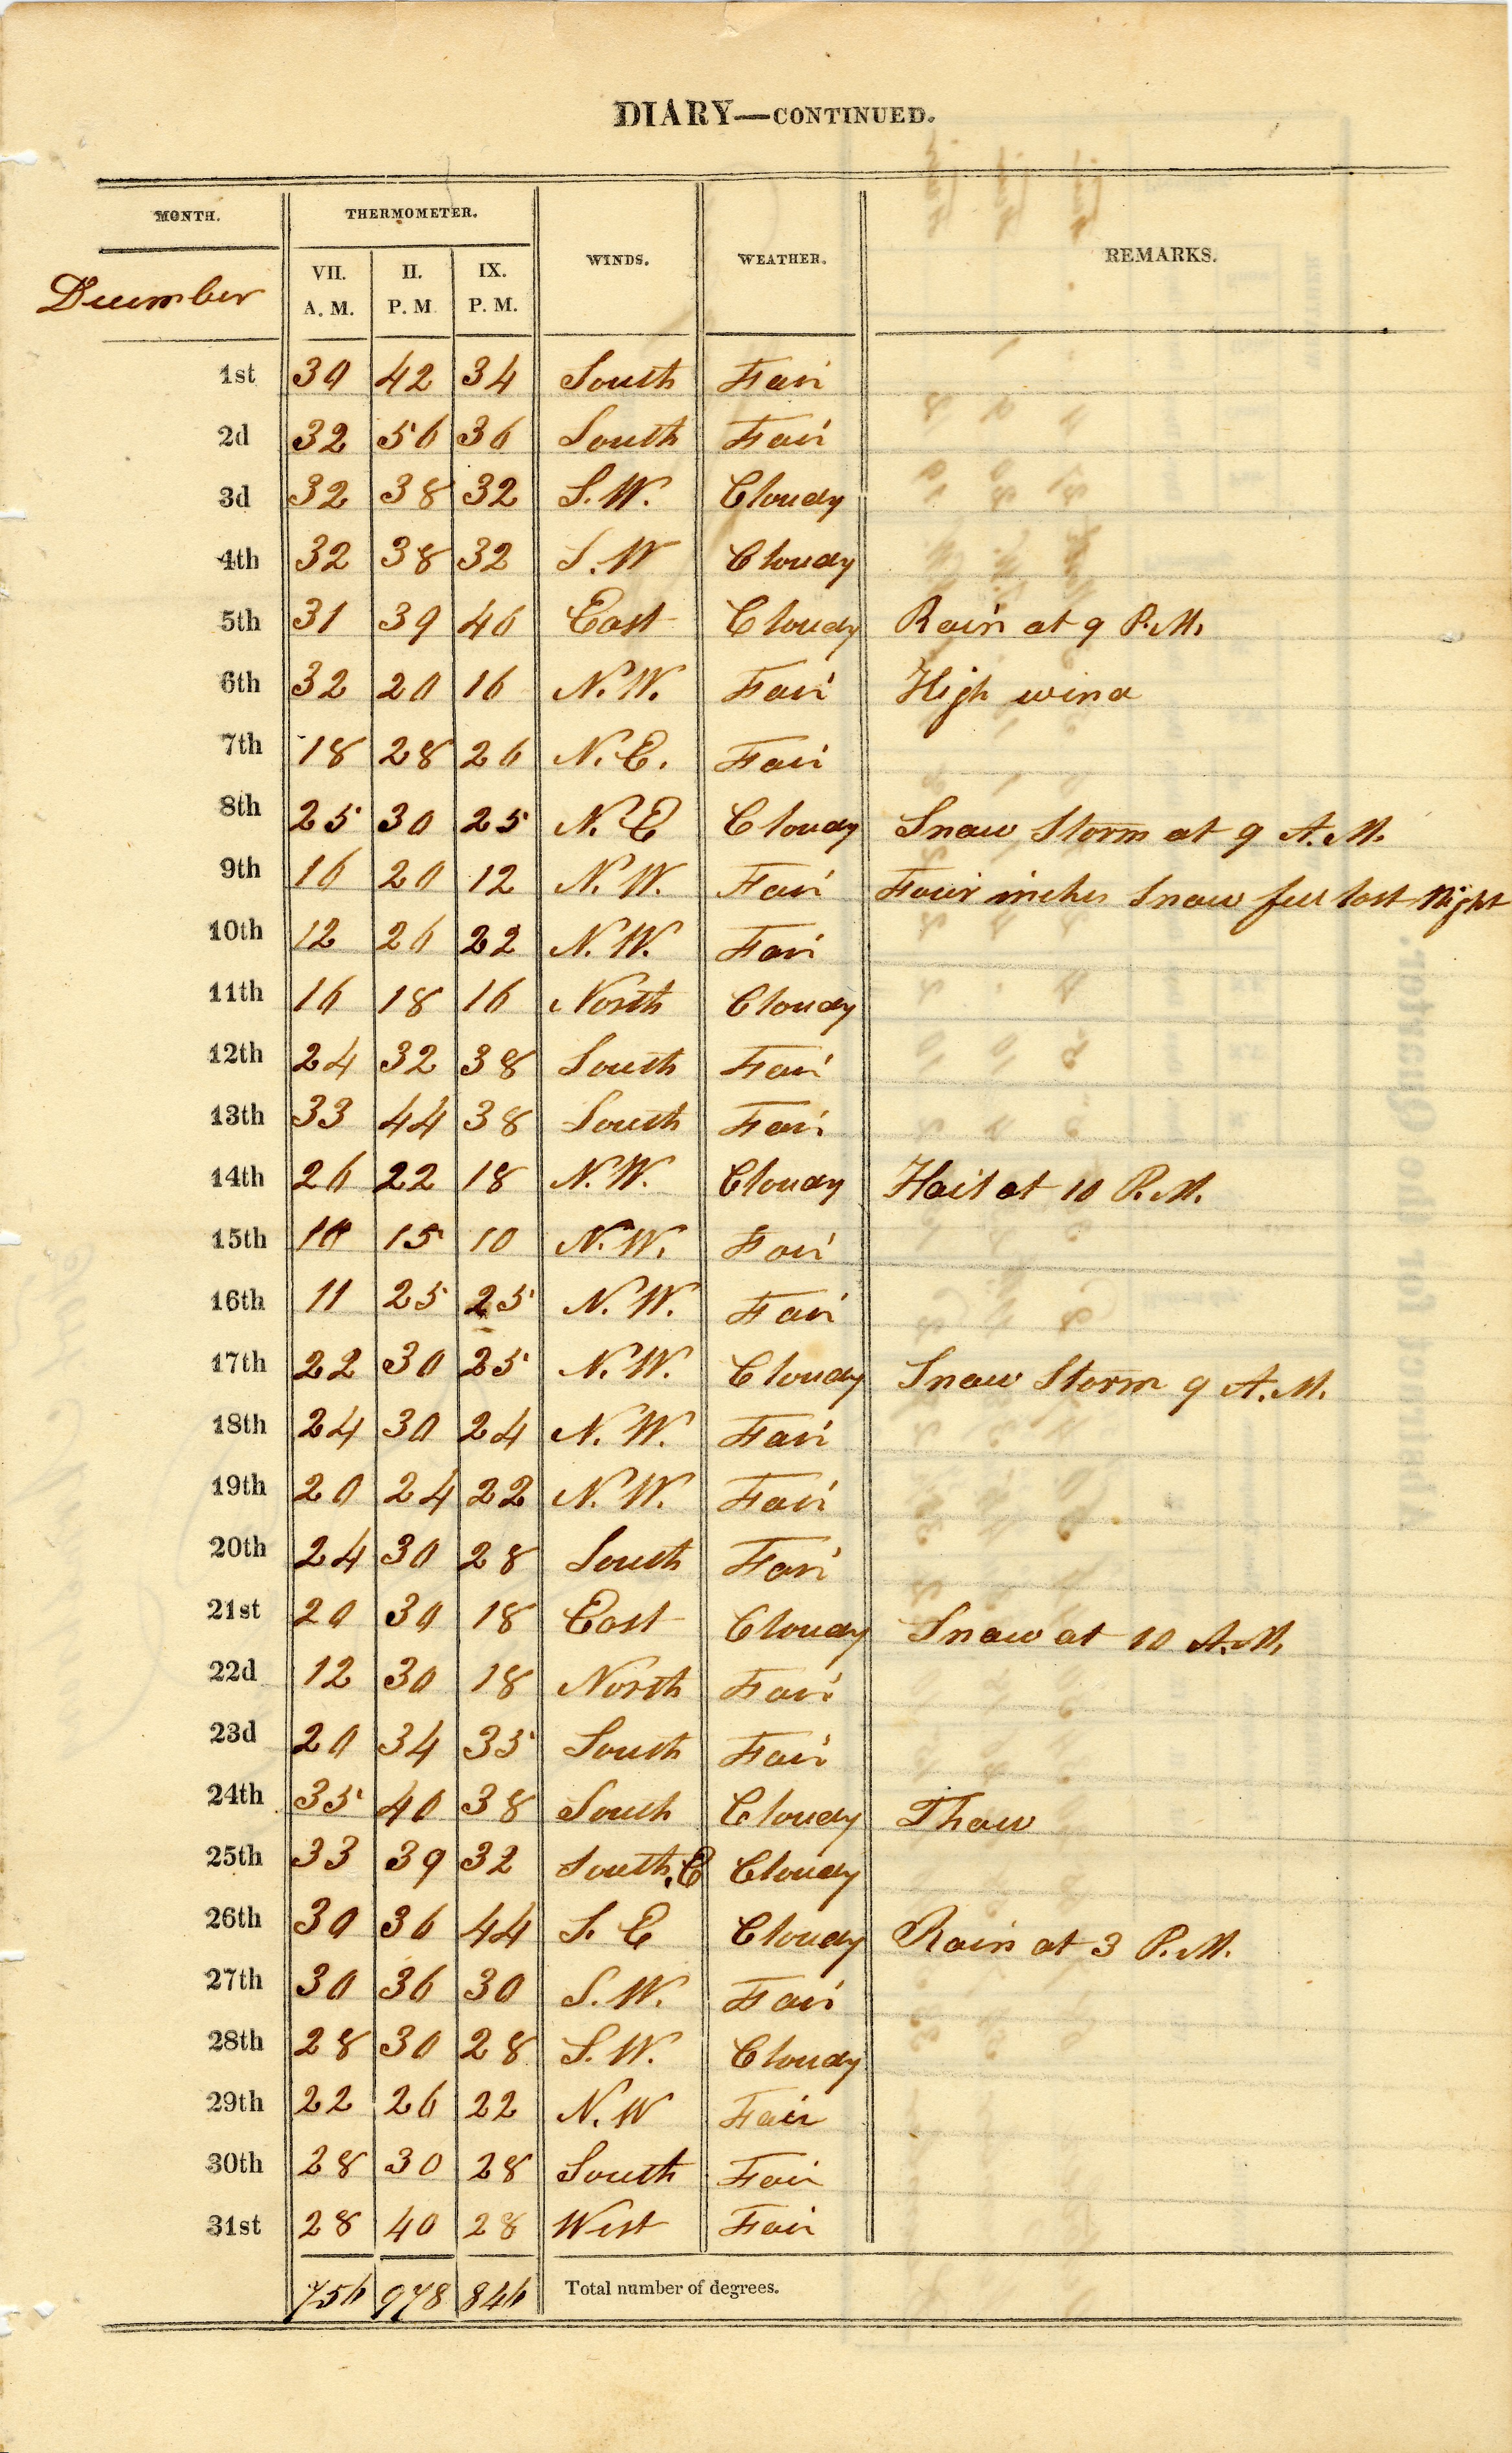 DIARY—CONTINUED.
MONTH. THERMOMETER. WINDS. WEATHER. REMARKS.
December VII. A. M. II. P. M IX. P. M.
1st 30 42 34 South Fair
2d 32 56 36 South Fair
3d 32 38 32 S. W. Cloudy
4th 32 38 32 S. W Cloudy
5th 31 39 46 East Cloudy Rain at 9 P.M.
6th 32 20 16 N. W. Fair High wind
7th 18 28 26 N. E. Fair
8th 25 30 25 N. E Cloudy Snow Storm at 9 A. M.
9th 16 20 12 N. W. Fair Four inches Snow fell last Night
10th 12 26 22 N. W. Fair
11th 16 18 16 North Cloudy
12th 24 32 38 South Fair
13th 33 44 38 South Fair
14th 26 22 18 N. W. Cloudy Hail at 10 P. M.
15th 10 15 10 N. W. Fair
16th 11 25 25 N. W. Fair
17th 22 30 25 N. W. Cloudy Snow Storm 9 A. M.
18th 24 30 24 N. W. Fair
19th 20 24 22 N. W. Fair
20th 24 30 28 South Fair
21st 20 30 18 East Cloudy Snow at 10 A.M.
22d 12 30 18 North Fair
23d 20 34 35 South Fair
24th 35 40 38 South Cloudy Thaw
25th 33 39 32 South. E Cloudy
26th 30 36 44 S. E Cloudy Rain at 3 P. M.
27th 30 36 30 S. W. Fair
28th 28 30 28 S. W. Cloudy
29th 22 26 22 N. W Fair
30th 28 30 28 South Fair
31st 28 40 28 West Fair
756 978 846 Total number of degrees.